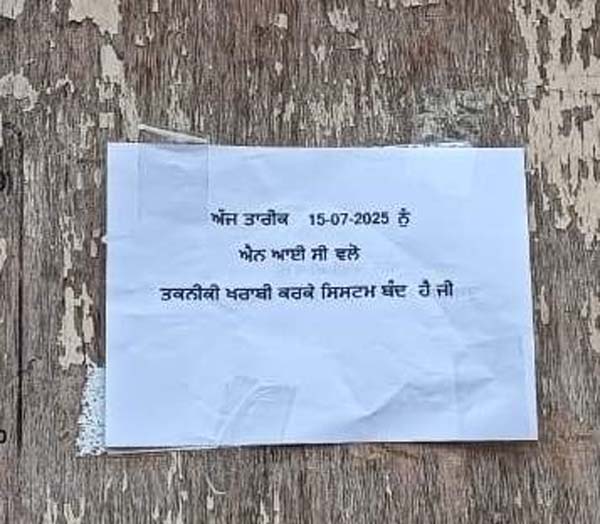 ਅੱਜ ਤਾਰੀਕ 15-07-2025 ਨੂੰ
ਐਨ ਆਈ ਸੀ ਵਲੋ
ਤਕਨੀਕੀ ਖਰਾਬੀ ਕਰਕੇ ਸਿਸਟਮ ਬੰਦ ਹੈ ਜੀ